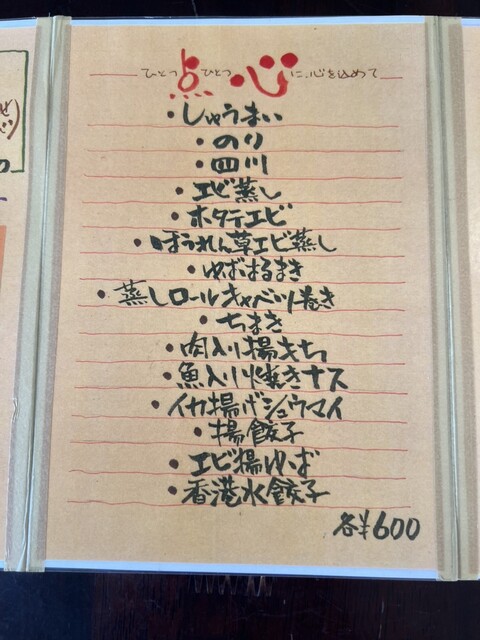 ひとつ 点 ひとつ 心 に、心を込めて
・しゅうまい
・のり
・四川
・エビ蒸し
・ホタテエビ
・ほうれん草エビ蒸し
・ゆばはるまき
・蒸しロールキャベツ巻き
・ちまき
・肉入り揚もち
・魚入り焼きナス
・イカ揚げシュウマイ
・揚餃子
・エビ揚ゆば
・香港水餃子
各¥600